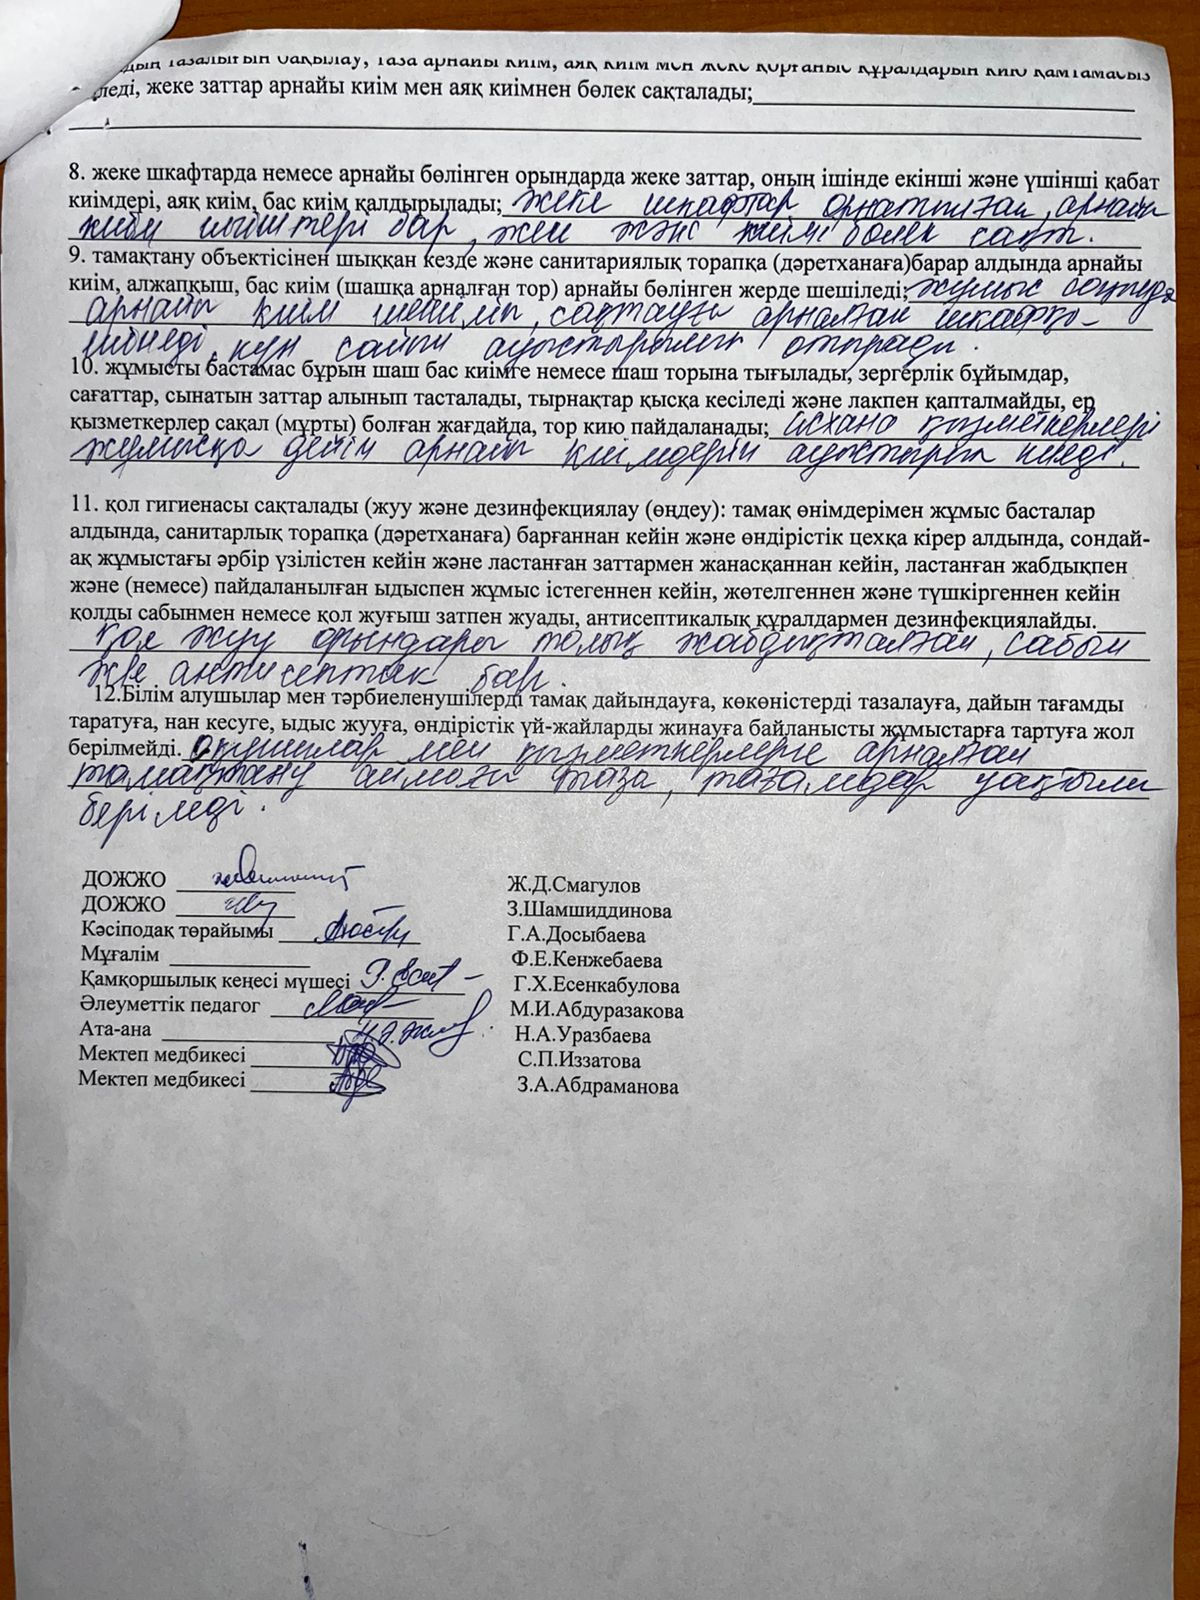 тазалығын бақылау, таза арнайы киім, аяқ киім мен жеке қорғаныс құралдарын кию қамтамасыз
жеке заттар арнайы киім мен аяқ киімнен бөлек сақталады;
8. жеке шкафтарда немесе арнайы бөлінген орындарда жеке заттар, оның ішінде екінші және үшінші қабат
киімдері, аяқ киім, бас киім қалдырылады; жеке шкафтар орнатылған, арнайы
киім ілгіштері бар, жеке және киімі бөлек сақт.
9. тамақтану объектісінен шыққан кезде және санитариялық торапқа (дәретханаға)барар алдында арнайы
киім, алжапқыш, бас киім (шашқа арналған тор) арнайы бөлінген жерде шешіледі; жұмыс соңында
арнайы киім шешіліп, сақтауға арналған шкафқа
ілінеді, күн сайын ауыстырылып отырады.
10. жұмысты бастамас бұрын шаш бас киімге немесе шаш торына тығылады, зергерлік бұйымдар,
сағаттар, сынатын заттар алынып тасталады, тырнақтар қысқа кесіледі және лакпен қапталмайды, ер
қызметкерлер сақал (мұрты) болған жағдайда, тор кию пайдаланады; Асхана қызметкерлері
жұмысқа дейін арнайы киімдерін ауыстырып киеді.
11. қол гигиенасы сақталады (жуу және дезинфекциялау (өңдеу): тамақ өнімдерімен жұмыс басталар
алдында, санитарлық торапқа (дәретханаға) барғаннан кейін және өндірістік цехқа кірер алдында, сондай-
ақ жұмыстағы әрбір үзілістен кейін және ластанған заттармен жанасқаннан кейін, ластанған жабдықпен
және (немесе) пайдаланылған ыдыспен жұмыс істегеннен кейін, жөтелгеннен және түшкіргеннен кейін
қолды сабынмен немесе қол жуғыш затпен жуады, антисептикалық құралдармен дезинфекциялайды.
Қол жуу орындары толық жабдықталған, сабын
және антисептик бар.
12.Білім алушылар мен тәрбиеленушілерді тамақ дайындауға, көкөністерді тазалауға, дайын тағамды
таратуға, нан кесуге, ыдыс жууға, өндірістік үй-жайларды жинауға байланысты жұмыстарға тартуға жол
берілмейді. Оқушылар мен қызметкерлерге арналған
тамақтану аймағы таза, тағамдар уақтылы
беріледі.
ДОЖЖО Ж.Д.Смагулов
ДОЖЖО З.Шамшиддинова
Кәсіподақ төрайымы Г.А.Досыбаева
Мұғалім Ф.Е.Кенжебаева
Қамқоршылық кеңесі мүшесі Г.Х.Есенкабулова
Әлеуметтік педагог М.И.Абдуразакова
Ата-ана Н.А.Уразбаева
Мектеп медбикесі С.П.Иззатова
Мектеп медбикесі З.А.Абдраманова